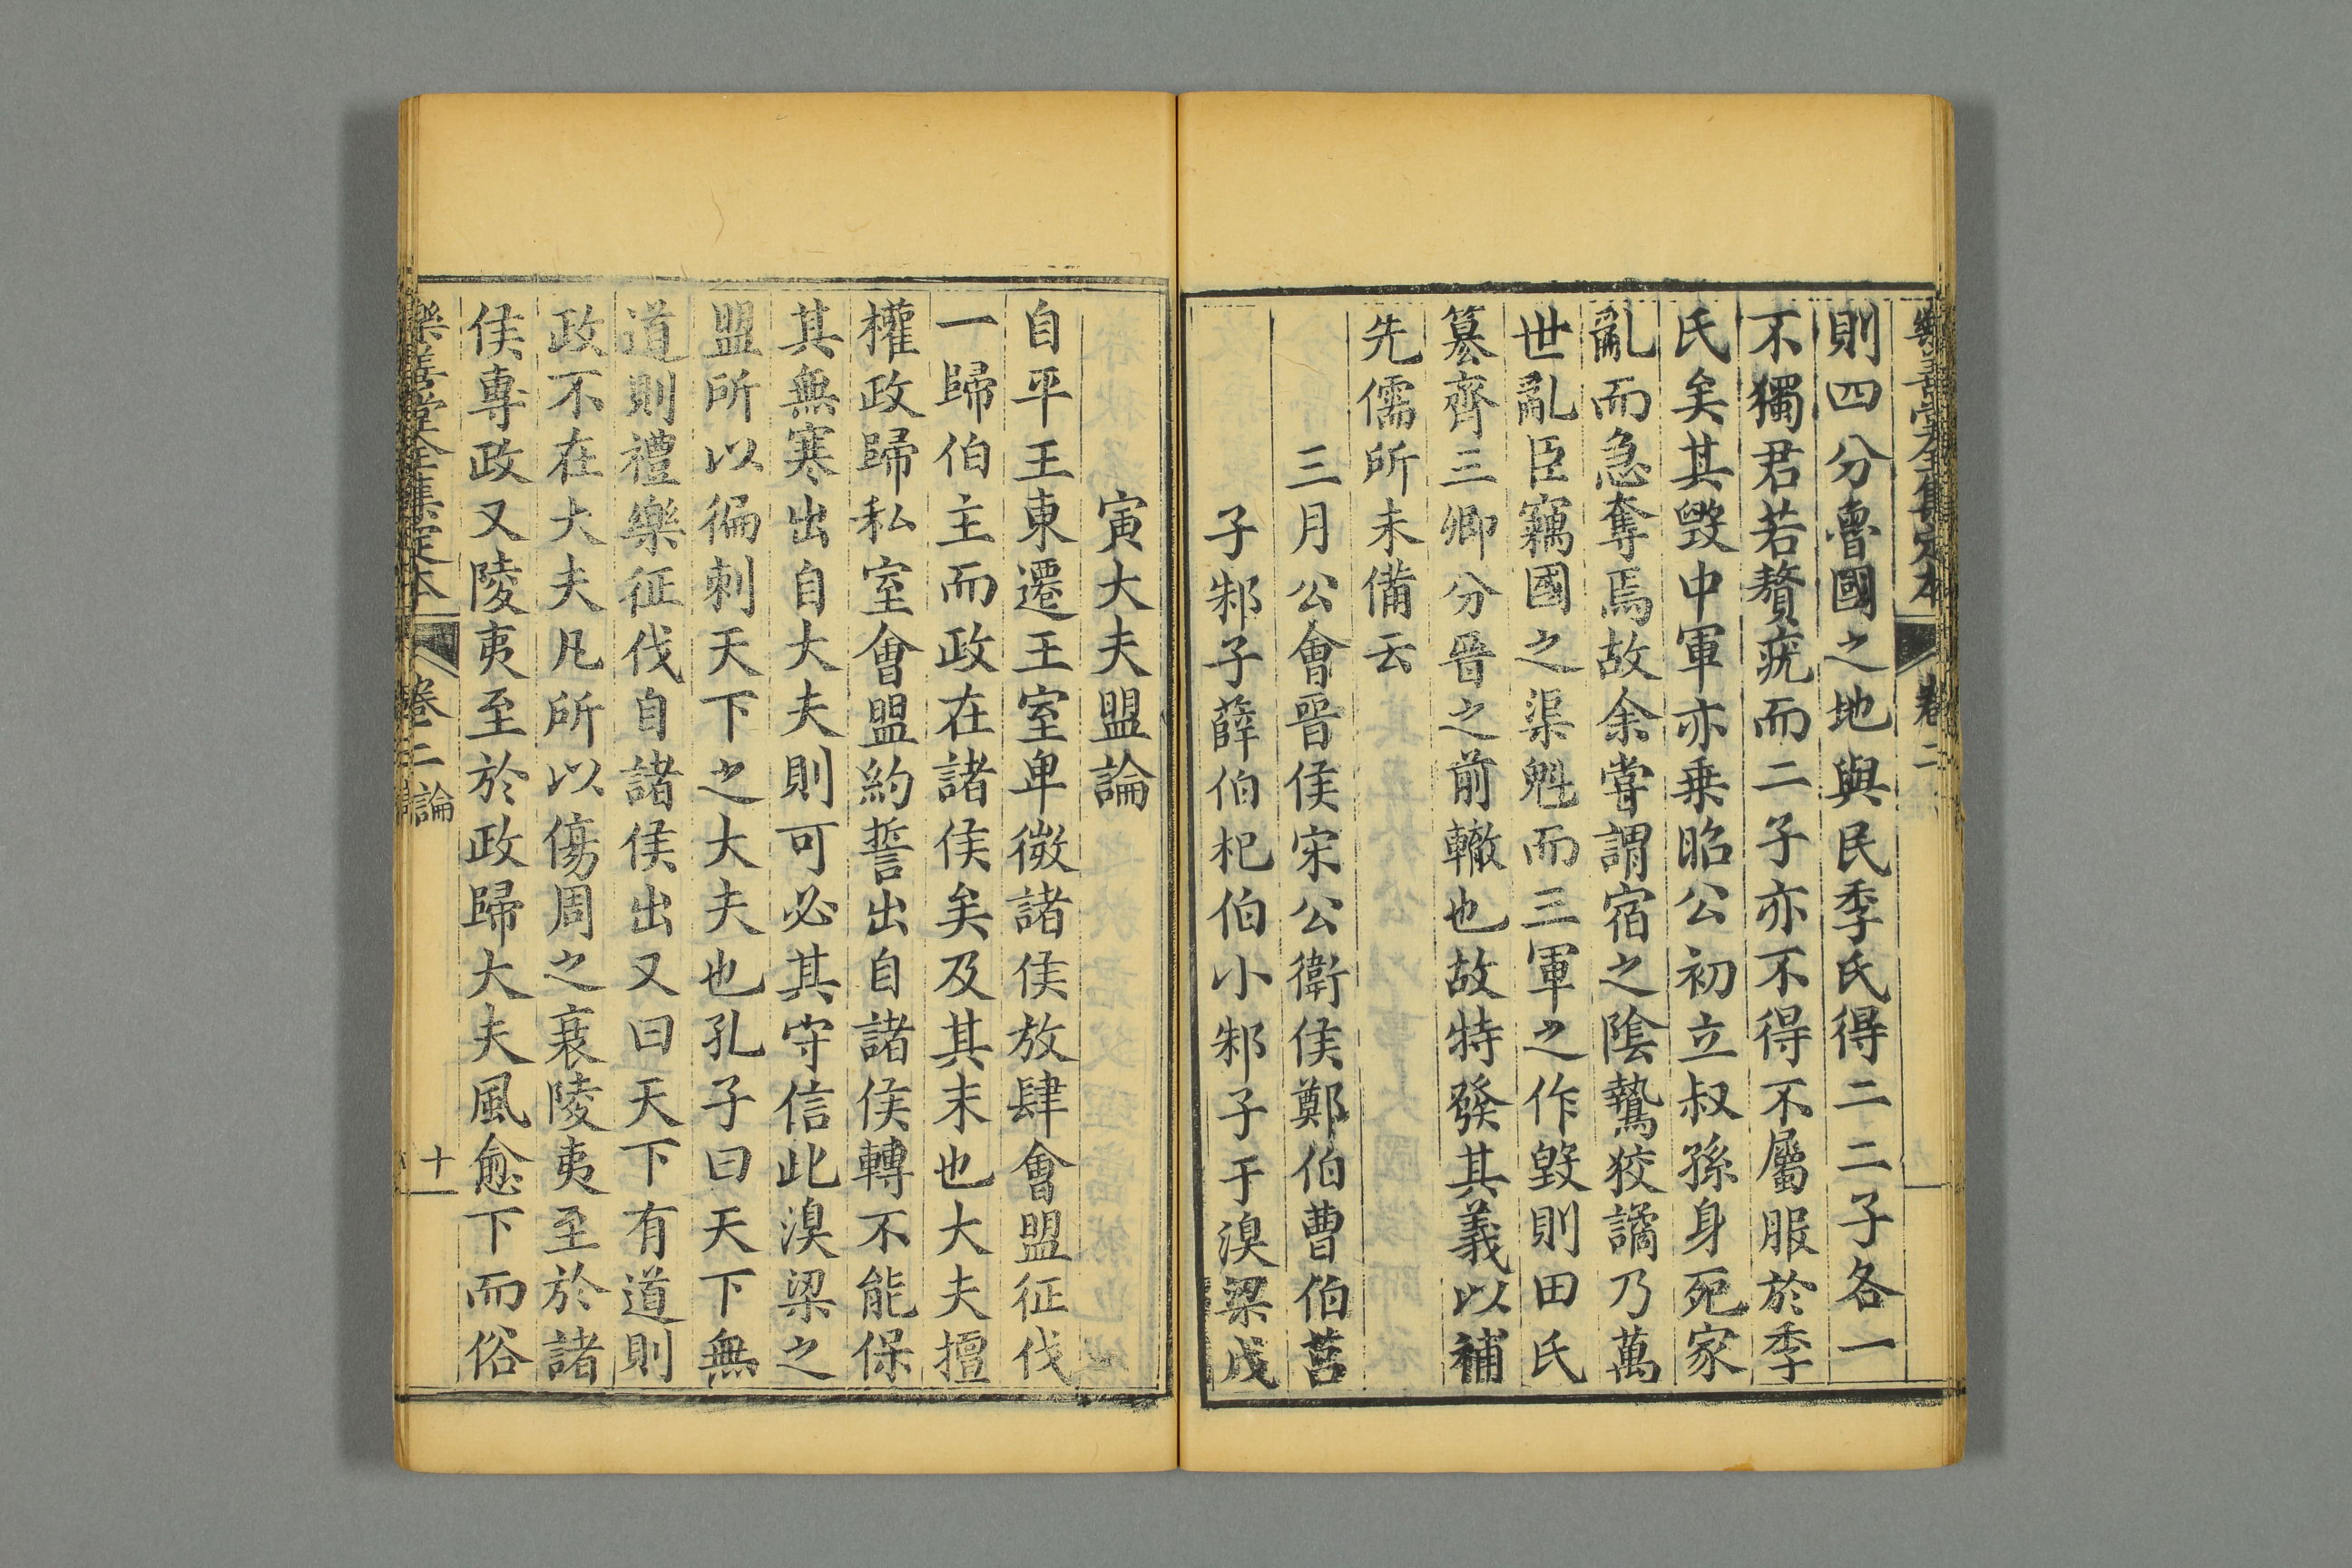 樂善堂全集定本 卷二
則四分魯國之地與民季氏得二二子各一
不獨君若贅疣而二子亦不得不屬服於季
氏矣其毀中軍亦乗昭公初立叔孫身死家
亂而急奪焉故余嘗謂宿之陰鷙狡譎乃萬
世亂臣竊國之渠魁而三軍之作毀則田氏
篡齊三卿分晉之前轍也故特發其義以補
先儒所未備云
三月公會晉侯宋公衛侯鄭伯曹伯莒
子邾子薛伯杞伯小邾子于溴梁戊
寅大夫盟論
自平王東遷王室卑微諸侯放肆會盟征伐
一歸伯主而政在諸侯矣及其末也大夫擅
權政歸私室會盟約誓出自諸侯轉不能保
其無寒出自大夫則可必其守信此溴梁之
盟所以徧刺天下之大夫也孔子曰天下無
道則禮樂征伐自諸侯出又曰天下有道則
政不在大夫凡所以傷周之衰陵夷至於諸
侯專政又陵夷至於政歸大夫風愈下而俗
樂善堂全集定本 卷二 論 十